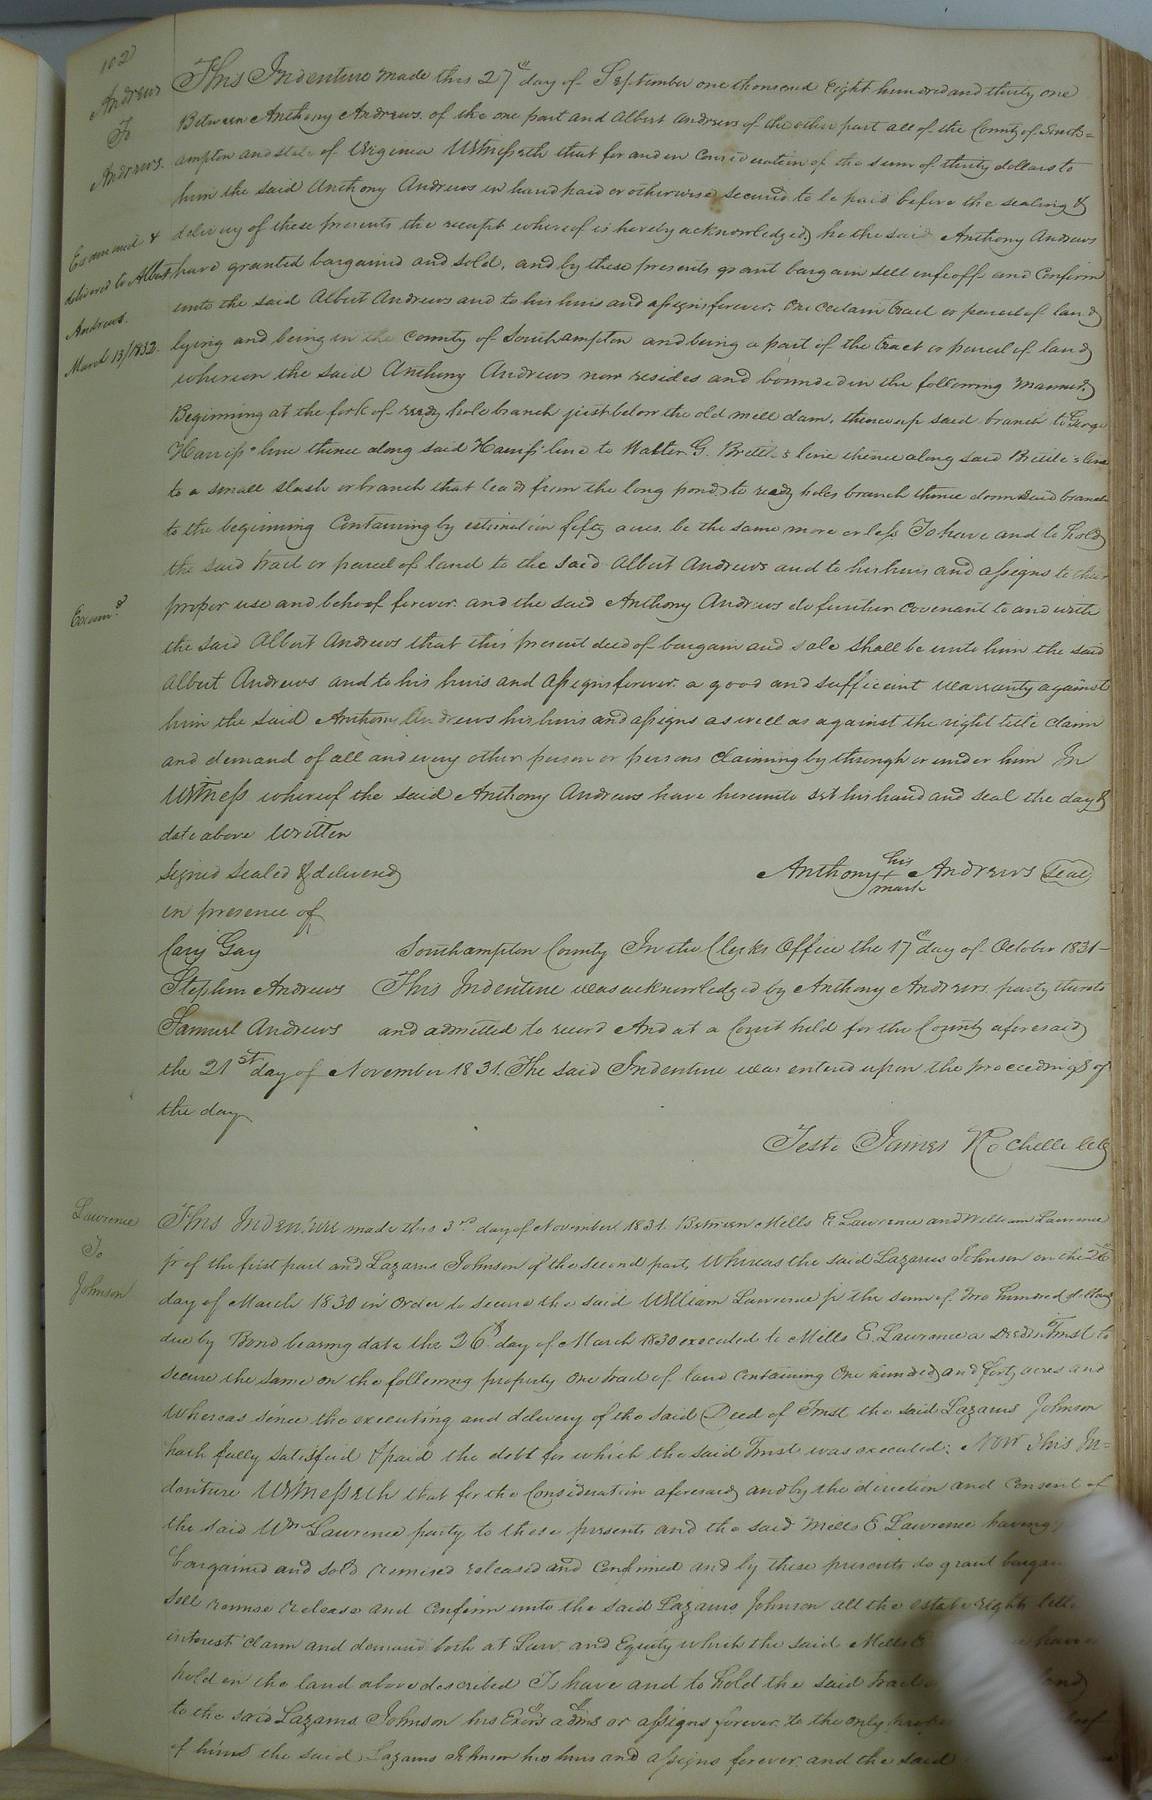 102
Andrews
To
Andrews.
Examined &
delivered to Albert
Andrews.
March 13/1832.
This Indenture made this 27th day of September one thousand Eight hundred and thirty one
Between Anthony Andrews of the one part and Albert Andrews of the other part all of the County of South=
ampton and state of Virginia Witnesseth that for and in Consideration of the sum of thirty dollars to
him the said Anthony Andrews in hand paid or otherwise secured to be paid before the sealing &
delivery of these presents the receipt whereof is hereby acknowledged, he the said Anthony Andrews
have granted bargained and sold, and by these presents grant bargain sell enfeoff and Confirm
unto the said Albert Andrews and to his heirs and assigns forever. One certain tract or parcel of land
lying and being in the County of Southampton and being a part of the tract or parcel of land
whereon the said Anthony Andrews now resides and bounded in the following manner,
Beginning at the fork of reedy hole branch just below the old mill dam, thence up said branch to George
Harriss line thence along said Harriss line to Walter G. Brittle's line thence along said Brittle's line
to a small slash or branch that leads from the long pond to reedy holes branch thence down said branch
to the beginning Containing by estimation fifty acres be the same more or less To have and to hold
the said tract or parcel of land to the said Albert Andrews and to his heirs and assigns to their
Examd.
proper use and behoof forever. and the said Anthony Andrews do further Covenant to and with
the said Albert Andrews that this present deed of bargain and sale shall be unto him the said
Albert Andrews and to his heirs and assigns forever. a good and sufficient warranty against
him the said Anthony Andrews his heirs and assigns as well as against the right title claim
and demand of all and every other person or persons Claiming by through or under him In
Witness whereof the said Anthony Andrews have hereunto set his hand and seal the day &
date above written
Signed Sealed & delivered
Anthony his + mark Andrews Seal
in presence of
Cary Gay Southampton County In the Clerks Office the 17th day of October 1831-
Stephen Andrews This Indenture was acknowledged by Anthony Andrews party thereto
Samuel Andrews and admitted to record And at a Court held for the County aforesaid
the 21st day of November 1831. The said Indenture was entered upon the proceedings of
the day
Teste James Rochelle
Lawrence
To
Johnson
This Indenture made this 3rd day of November 1831. Between Mills E Lawrence and William Lawrence
jr of the first part and Lazarus Johnson of the second part, Whereas the said Lazarus Johnson on the 26th
day of March 1830 in order to secure the said William Lawrence jr the sum of Two hundred dollars
due by Bond bearing date the 26th day of March 1830 executed to Mills E. Lawrence a Deed in Trust to
secure the same on the following property One tract of land Containing One hundred and forty acres and
Whereas since the executing and delivery of the said Deed of Trust the said Lazarus Johnson
hath fully satisfied & paid the debt for which the said Trust was executed: Now this In=
denture Witnesseth that for the Consideration aforesaid and by the direction and Consent of
the said Wm Lawrence party to these presents and the said Mills E Lawrence having
bargained and sold remised released and Confirmed and by these presents do grant bargain
sell remise release and Confirm unto the said Lazarus Johnson all the estate right title
interest Claim and demand both at Law and Equity which the said Mills E have or
hold in the land above described To have and to hold the said tract land
to the said Lazarus Johnson his Exors adms or assigns forever to the only proper behoof
of him the said Lazarus Johnson his heirs and assigns forever. and the said